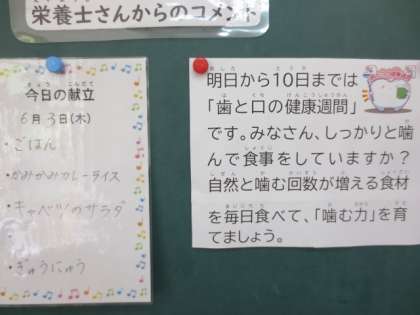 栄養士さんからのコメント
今日の献立
6月3日(木)
・ごはん
・かみかみカレーライス
・キャベツのサラダ
・
・ぎゅうにゅう
明日から10日までは
「歯と口の健康週間」
です。みなさん、しっかりと噛
んで食事をしていますか?
自然と噛む回数が増える食材
を毎日食べて、「噛む力」を育
てましょう。